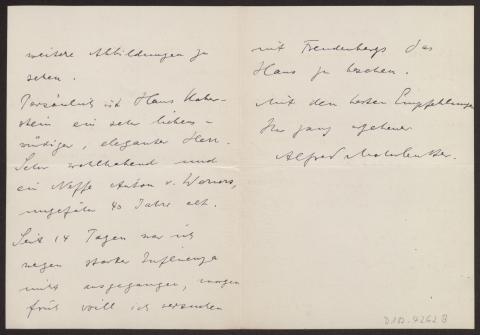 weitere Abbildungen zu
sehen.
Persönlich ist Hans Haber-
stein ein sehr liebens-
würdiger, eleganter Herr.
Sehr wohlhabend und
ein Neffe Anton v. Werners,
ungefähr 40 Jahre alt.
Seit 14 Tagen war ich
wegen starker Influenza
nicht ausgegangen, morgen
früh will ich versuchen
mit Freudenbergs das
Haus zu besehen.
Mit den besten Empfehlungen
Ihr ganz ergebener
Alfred